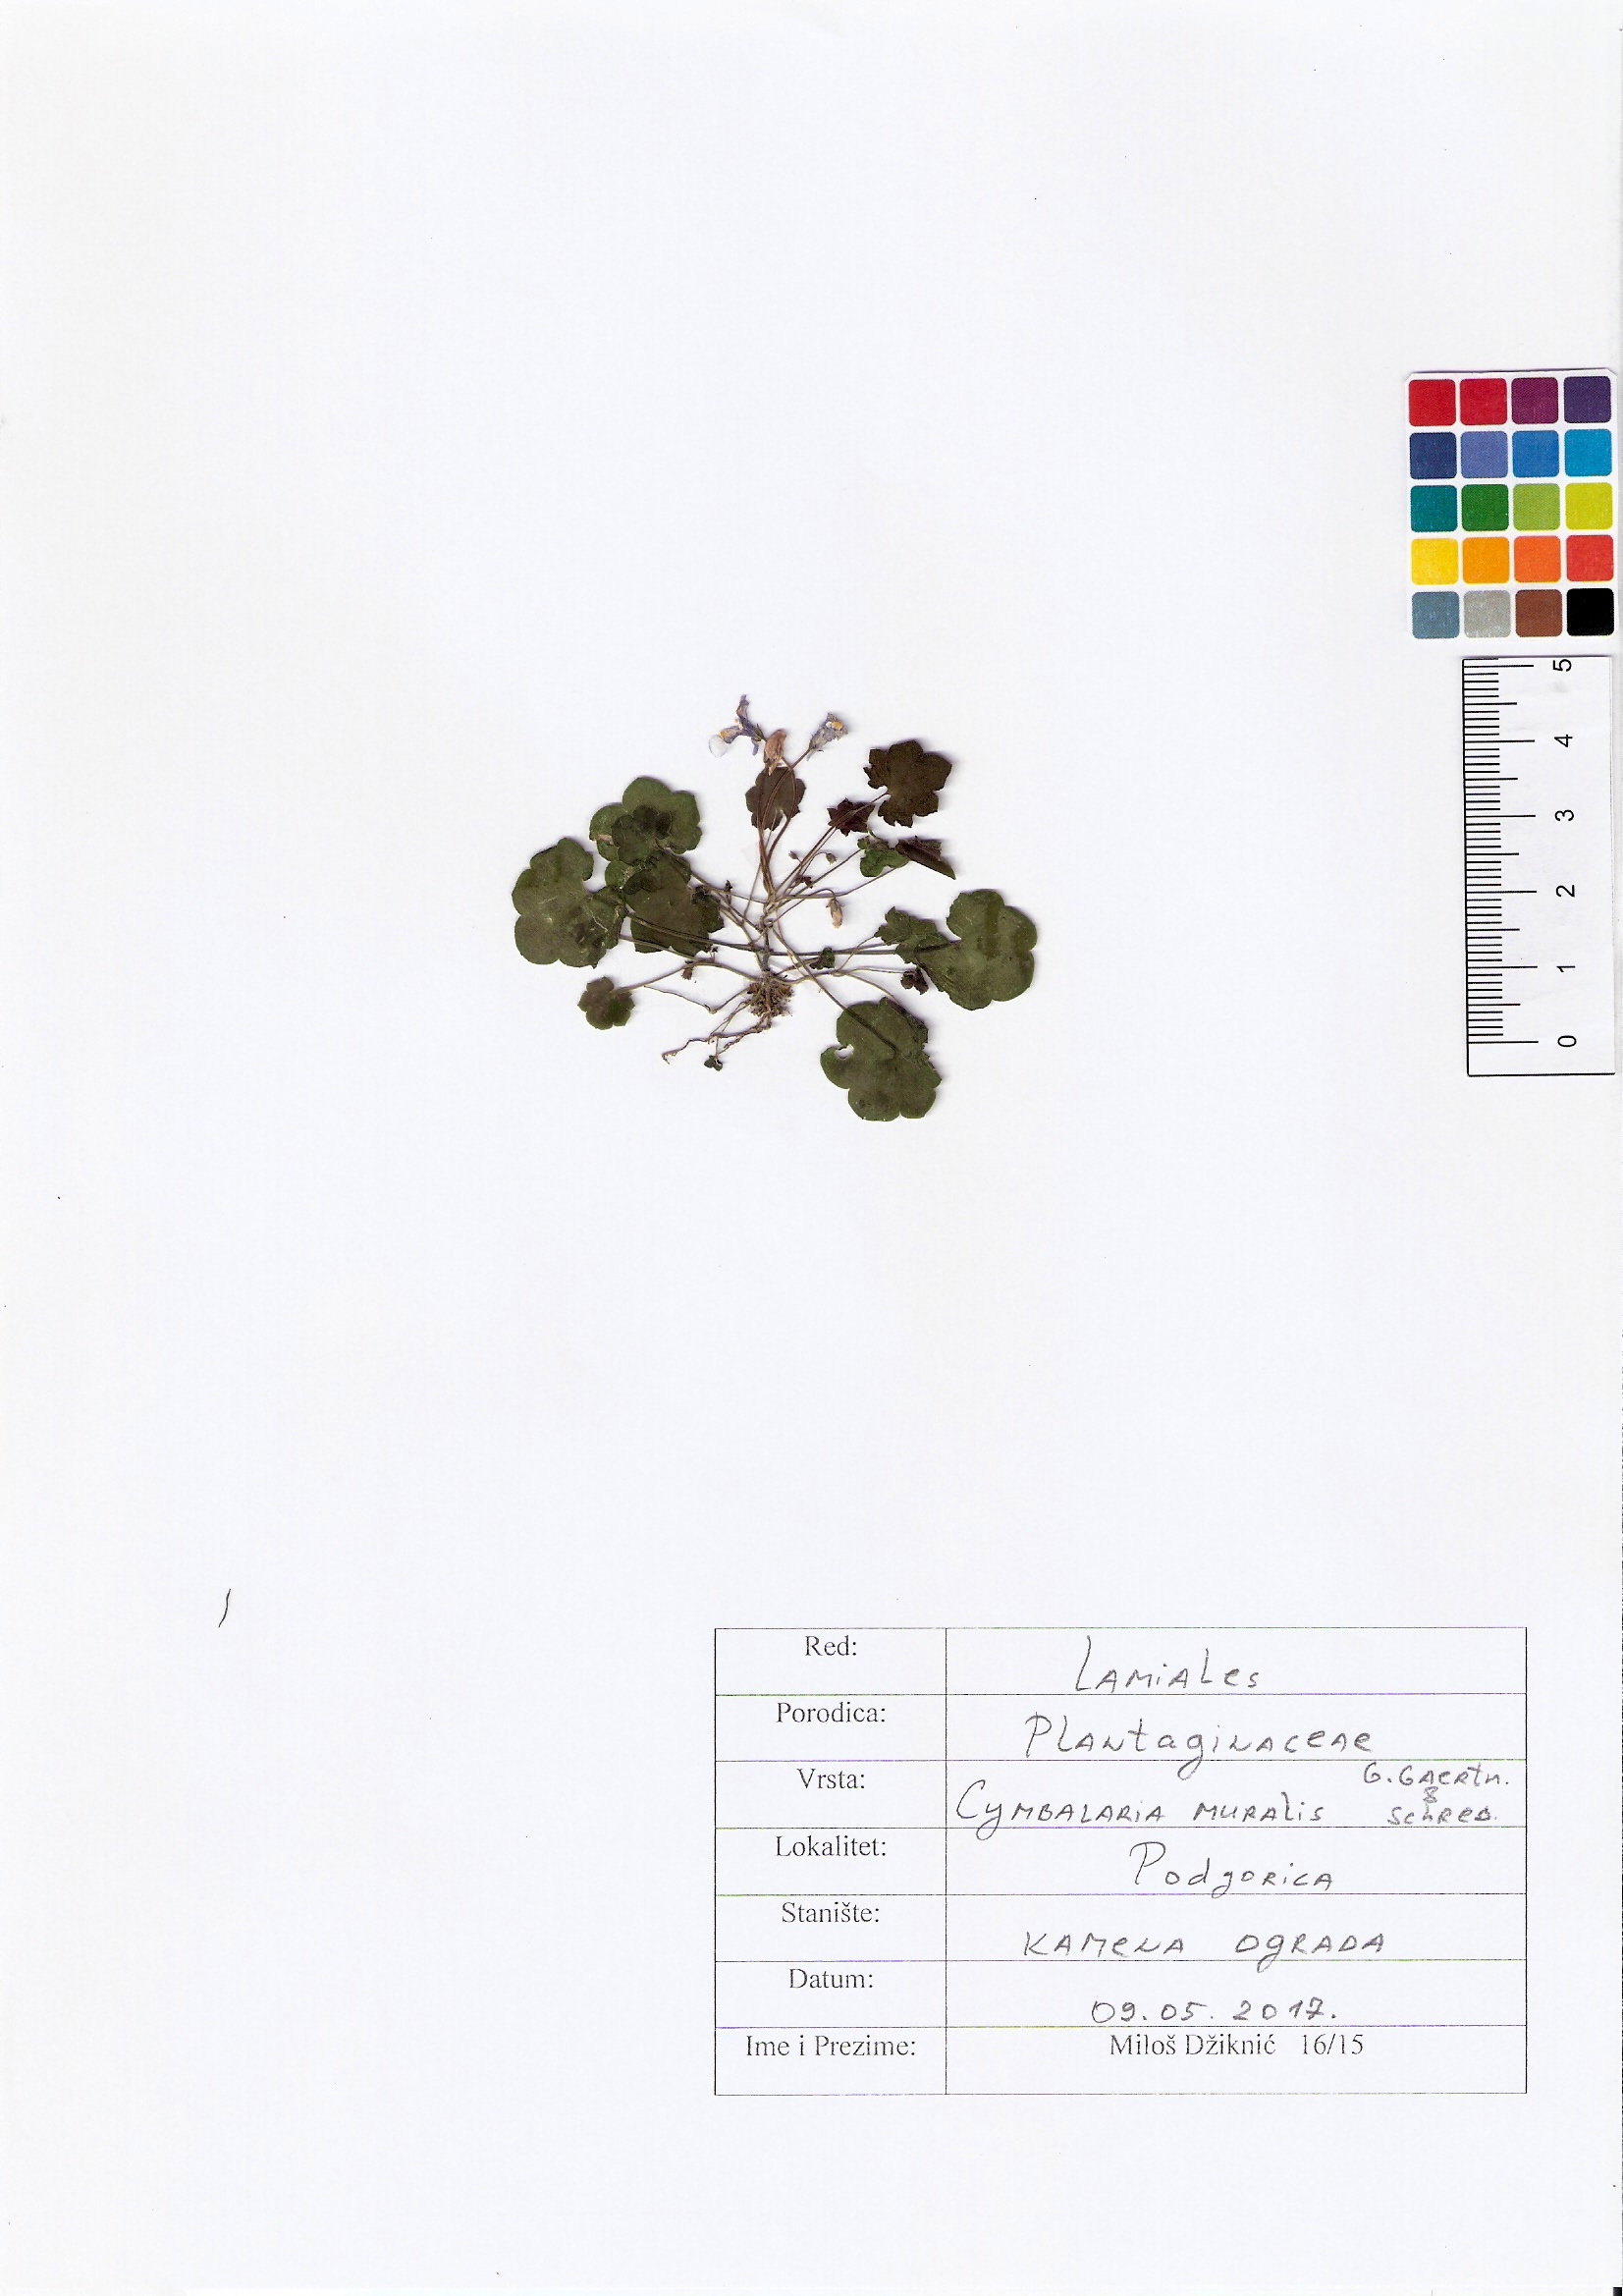 5
4
3
2
1
0
Red: Lamiales
Porodica: Plantaginaceae
Vrsta: Cymbalaria muralis G. Gaertn. & Schreb.
Lokalitet: Podgorica
Stanište: Kamena ograda
Datum: 09.05.2017.
Ime i Prezime: Miloš Džiknić 16/15